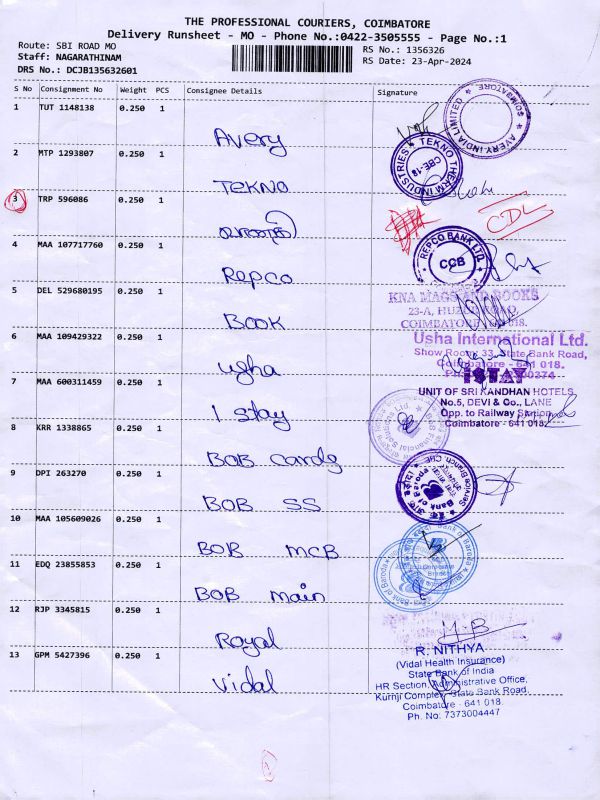 THE PROFESSIONAL COURIERS, COIMBATORE
Delivery Runsheet - MO - Phone No.:0422-3505555 - Page No.:1
Route: SBI ROAD MO
RS No.: 1356326
Staff: NAGARATHINAM
RS Date: 23-Apr-2024
DRS No.: DCJB135632601
S No Consignment No Weight PCS Consignee Details Signature
1 TUT 1148138 0.250 1
Avery
AVERY INDIA LIMITED COIMBATORE
2 MTP 1293807 0.250 1
Tekno
TEKNO THERM INDUSTRIES CBE-18
3 TRP 596086 0.250 1
CDL
4 MAA 107717760 0.250 1
Repco
REPCO BANK LTD. CCB
5 DEL 529680195 0.250 1
Book
KNA MAGS AND BOOKS
23-A,
COIMBATORE 018.
6 MAA 109429322 0.250 1
usha
Usha International Ltd.
Show Room 33, State Bank Road,
Coimbatore - 641 018.
7 MAA 600311459 0.250 1
I stay
ISTAY
UNIT OF SRI KANDHAN HOTELS
No.5, DEVI & Co., LANE
Opp. to Railway Station
Coimbatore - 641 018.
8 KRR 1338865 0.250 1
BOB Cards
9 DPI 263270 0.250 1
BOB SS
Bank of Baroda
Service Branch,
10 MAA 105609026 0.250 1
BOB MCB
Bank of Baroda
11 EDQ 23855853 0.250 1
BOB main
Bank of Baroda
12 RJP 3345815 0.250 1
Royal
13 GPM 5427396 0.250 1
Vidal
R. NITHYA
(Vidal Health Insurance)
State Bank of India
HR Section, Administrative Office,
Kurinji Complex, State Bank Road,
Coimbatore - 641 018.
Ph. No: 7373004447